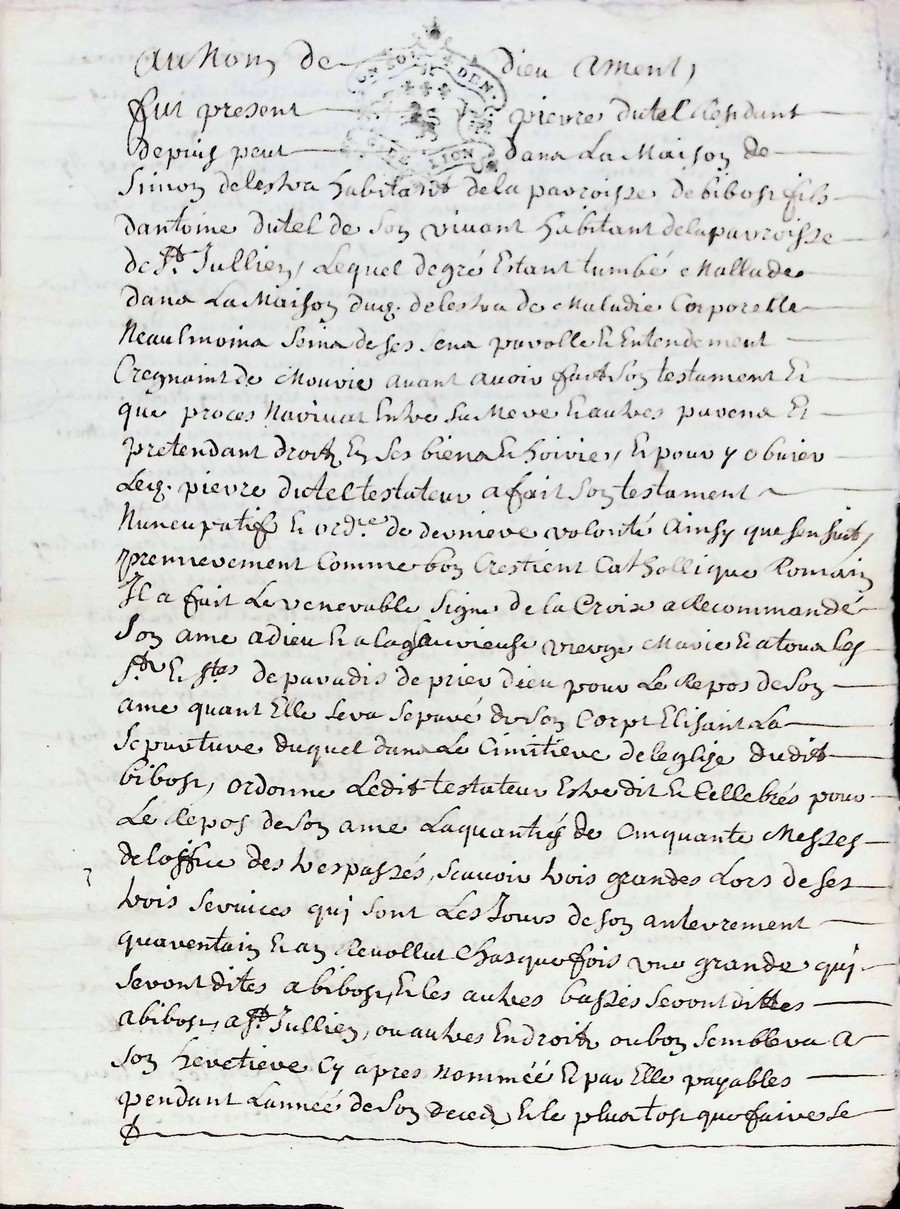 Au Nom de dieu Ament,
fut present pierre dutel Residant
depuis peut dans La Maison de
Simon delestra habitant de la parroisse de bibost fils
dantoine dutel de Son vivant habitant delaparroisse
de St. Jullien, Lequel degré Estant tumbé Mallade
dans La Maison dud. delestra de Maladie Corporelle
Neaulmoins Seins de ses Sens parolle Et Entendement
Cregnaint de Mourir avant avoir fait Son testament Et
que proces Narivat Entre Sa Mere Et autres parens Et
pretendant droitz En Ses biens Et hoiries, Et pour y obvier
Led. pierre dutel testateur a fait Son testament
Nuncupatif Et ordre de derniere volonté Ainsy que sen suit,
premierement Comme bon Crestient Catholliique Romain
Il a fait Le venerable Signe de la Croix a Recommandé
Son ame a dieu Et a la glaurieuse vierge Marie Et a tous Les
Sts Et Stes de paradis de prier dieu pour Le Repos de Son
ame quant Elle Sera Separé de Son Corpt Elisant La
Sepurture duquel dans Le Cimitiere de leglise dudit
bibost, ordonne Ledit testateur Estre dit Et Cellebrés pour
Le Repos de Son ame La quantité de Cinquante Messes
de loffice des trespassés, scavoir trois grandes Lors de ses
trois Services quj sont Les Jours de Son anterrement
quarentain Et an Revollut Chasque fois une grande quj
Seront dites a bibost, Et les autres basses Seront dittes
a bibost, a St. Jullien, ou autres Endroitz ou bon Semblera A
Son heretiere Cy apres Nommée Et par Elle payables
pendant Lannée de Son deced Et le plustost que faire Se